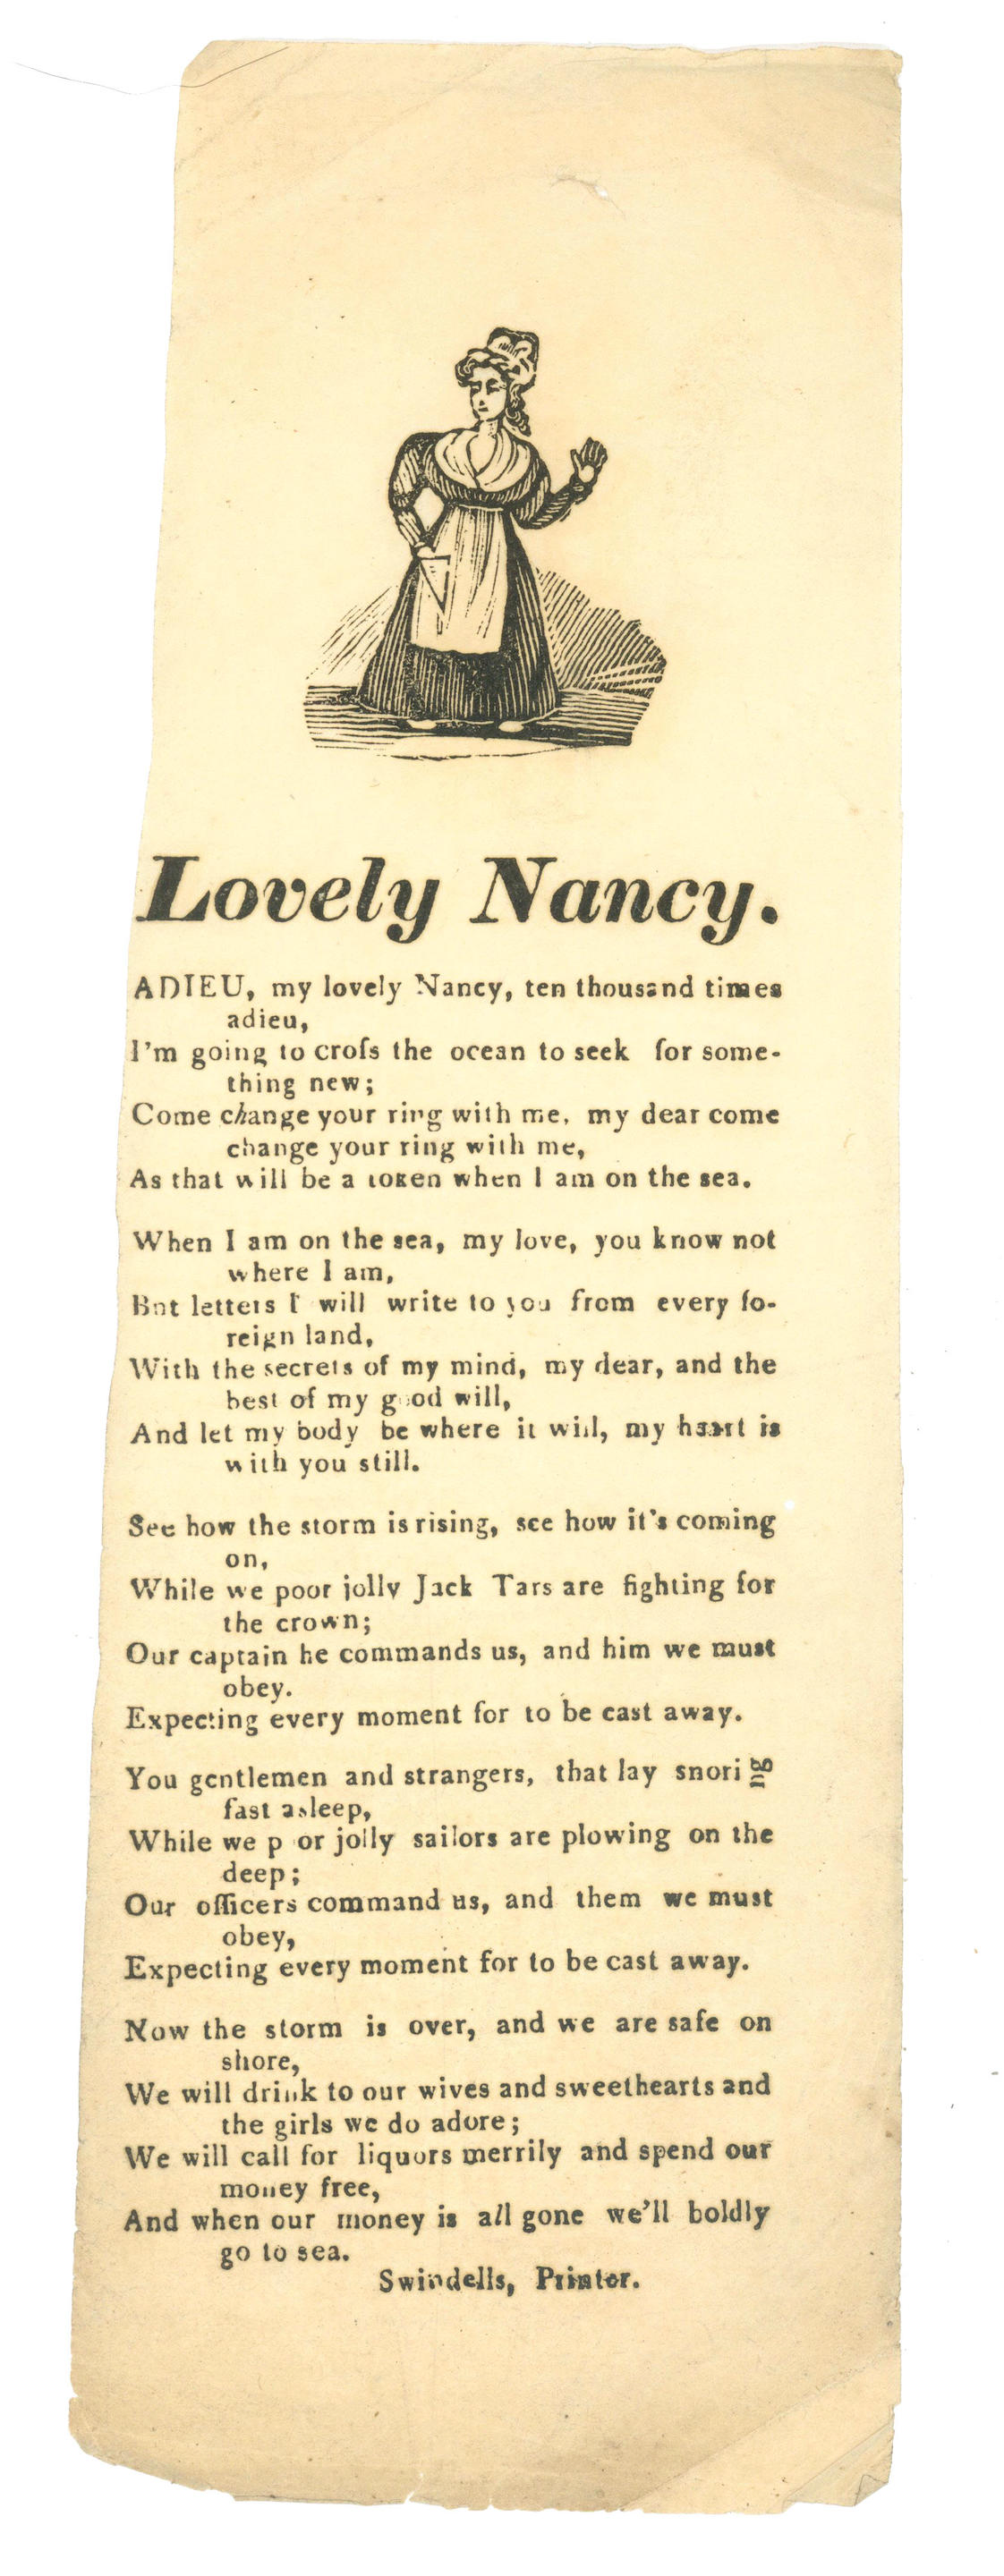 Lovely Nancy.
ADIEU, my lovely Nancy, ten thousand times
adieu,
I'm going to croſs the ocean to seek for some-
thing new;
Come change your ring with me, my dear come
change your ring with me,
As that will be a token when I am on the sea.
When I am on the sea, my love, you know not
where I am,
Bnt letters I will write to you from every fo-
reign land,
With the secrets of my mind, my dear, and the
best of my good will,
And let my body be where it will, my haart is
with you still.
See how the storm is rising, see how it's coming
on,
While we poor jolly Jack Tars are fighting for
the crown;
Our captain he commands us, and him we must
obey.
Expecting every moment for to be cast away.
You gentlemen and strangers, that lay snoring
fast asleep,
While we p or jolly sailors are plowing on the
deep;
Our officers command us, and them we must
obey,
Expecting every moment for to be cast away.
Now the storm is over, and we are safe on
shore,
We will drink to our wives and sweethearts and
the girls we do adore;
We will call for liquors merrily and spend our
money free,
And when our money is all gone we'll boldly
go to sea.
Swindells, Printer.